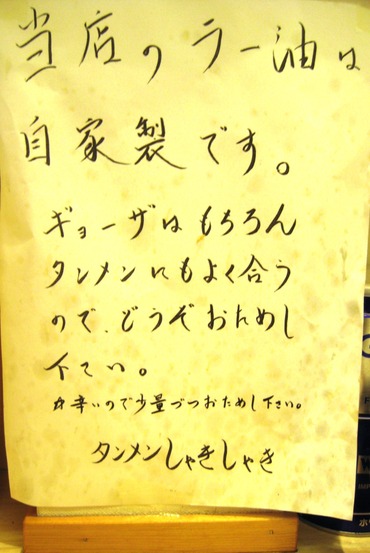 当店のラー油は
自家製です。
ギョーザはもちろん
タンメンにもよく合う
ので、どうぞおためし
下さい。
☆辛いので少量づつおためし下さい。
タンメンしゃきしゃき